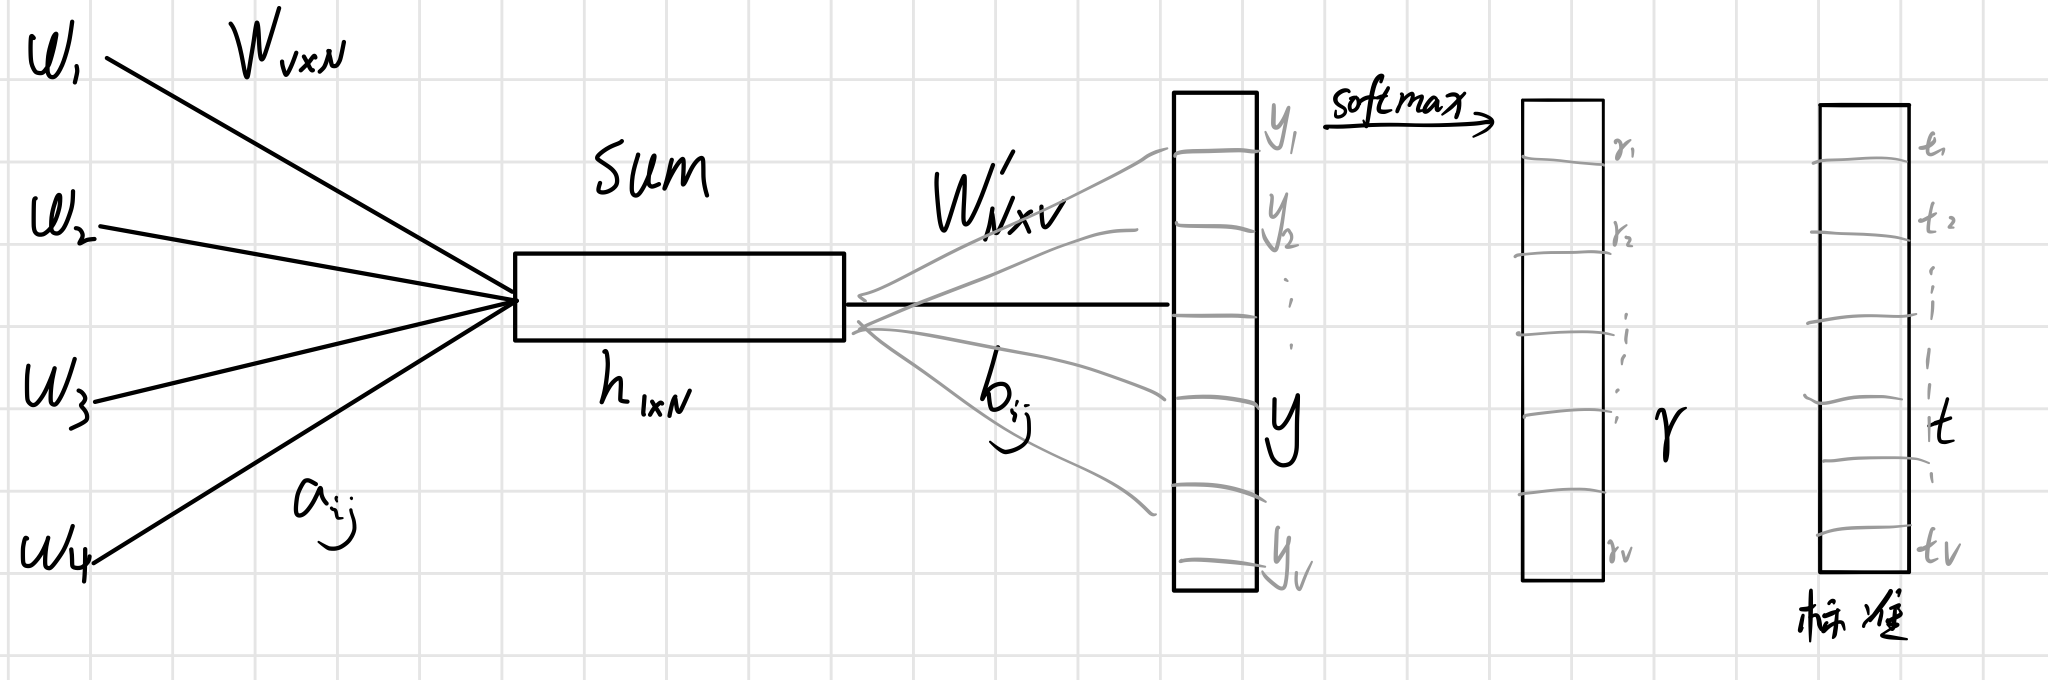 w₁
W_{V×N}
w₂
w₃
w₄
a_{ij}
sum
h_{1×N}
W'_{N×V}
b_{ij}
y₁
y₂
⋮
y
y_V
softmax
r₁
r₂
⋮
r
r_V
t₁
t₂
⋮
t
t_V
标准